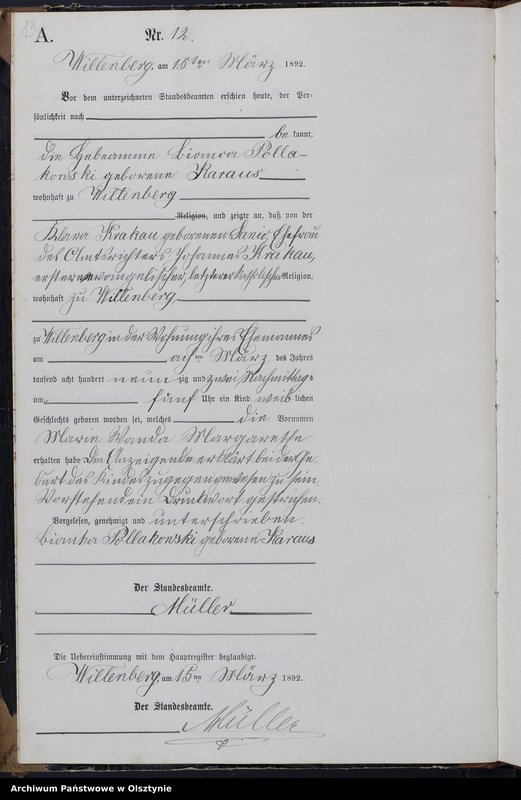 13
A.
Nr. 12.
Willenberg, am 15ten März 1892.
Vor dem unterzeichneten Standesbeamten erschien heute, der Per-
sönlichkeit nach
be kannt,
die Hebeamme Bianca Polla-
kowski geborene Karaus
wohnhaft zu Willenberg
Religion, und zeigte an, daß von der
Klara Krakau geborenen Sanio, Ehefrau
des Amtsrichters Johannes Krakau,
ersterer evangelischer, letzterer katholischer Religion,
wohnhaft zu Willenberg,
zu Willenberg in der Wohnung ihres Ehemannes
am achten März des Jahres
tausend acht hundert neun zig und zwei Nachmittags
um fünf Uhr ein Kind weib lichen
Geschlechts geboren worden sei, welches die Vornamen
Marie Wanda Margarethe
erhalten habe. Die Anzeigende erklärt bei der Ge
burt des Kindes zugegen gewesen zu sein.
Vorstehend ein Druckwort gestrichen.
Vorgelesen, genehmigt und unterschrieben.
Bianka Pollakowski geborene Karaus
Der Standesbeamte.
Müller
Die Uebereinstimmung mit dem Hauptregister beglaubigt.
Willenberg, am 15ten März 1892.
Der Standesbeamte.
Müller
Archiwum Państwowe w Olsztynie